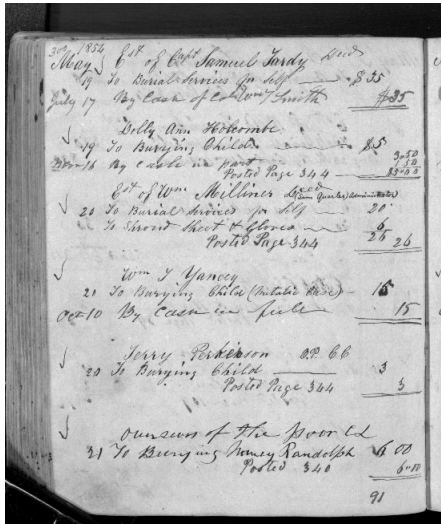 308 1854
May Est of Capt Samuel Tardy Decd
19 To Burial Services for Self $35
July 17 By Cash of Col Wm Smith $35
Dolly Ann Holcombe
19 To Burying Child $5
Nov 16 By Cash in part 3.50
1.50
Posted Page 344 $5.00
Est of Wm Milliner Decd (Sam Quarles Administrator)
20 To Burial Services for Self 20
To Shroud Sheet & Gloves 6
Posted Page 344 26 26
Wm T Yancey
21 To Burying Child (Metalic Case) 15
Oct 10 By Cash in full 15
Terry Perkinson O.P. CC
20 To Burying Child 3
Posted Page 344 3
overseers of the poor
21 To Burying Nancy Randolph 6 00
Posted 340 6.00
91